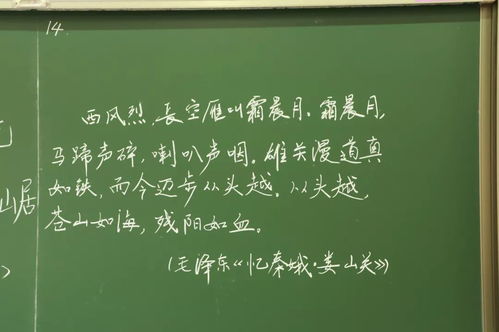 14.
西风烈,長空雁叫霜晨月。霜晨月,
马蹄声碎,喇叭声咽。雄关漫道真
山居
如铁,而今迈步从头越。从头越,
苍山如海,残阳如血。
(毛泽东《忆秦娥·娄山关》)